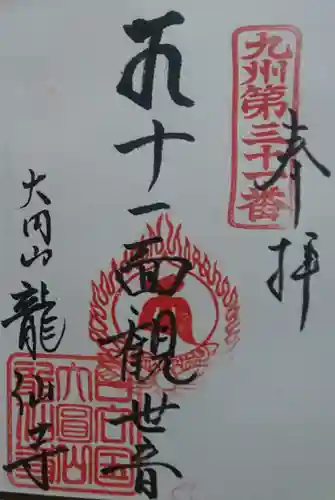 奉拝
九州第三十一番
十一面観世音
大円山
龍仙寺